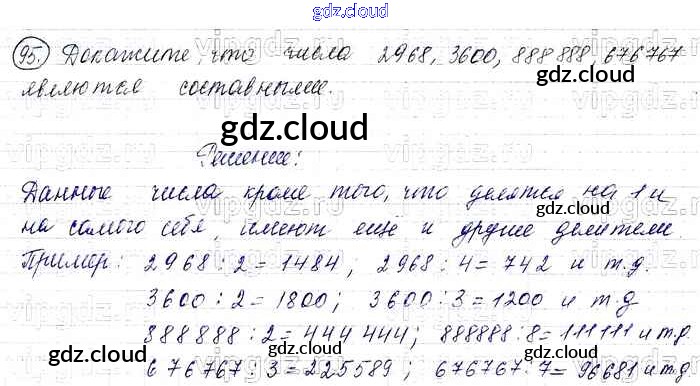 gdz.cloud
95. Докажите, что числа 2968, 3600, 888 888, 676 767
являются составными.
gdz.cloud
gdz.cloud
Решение:
Данные числа кроме того, что делятся на 1 и
gdz.cloud
на самого себя, имеют ещё и другие делители
Пример: 2968 : 2 = 1484 ; 2968 : 4 = 742 и т.д.
gdz.cloud
3600 : 2 = 1800 ; 3600 : 3 = 1200 и т.д
888 888 : 2 = 444 444 ; 888888 : 8 = 111 111 и т.д.
gdz.cloud
gdz.cloud
676767 : 3 = 225589 ; 676767 : 7 = 96681 и т.д